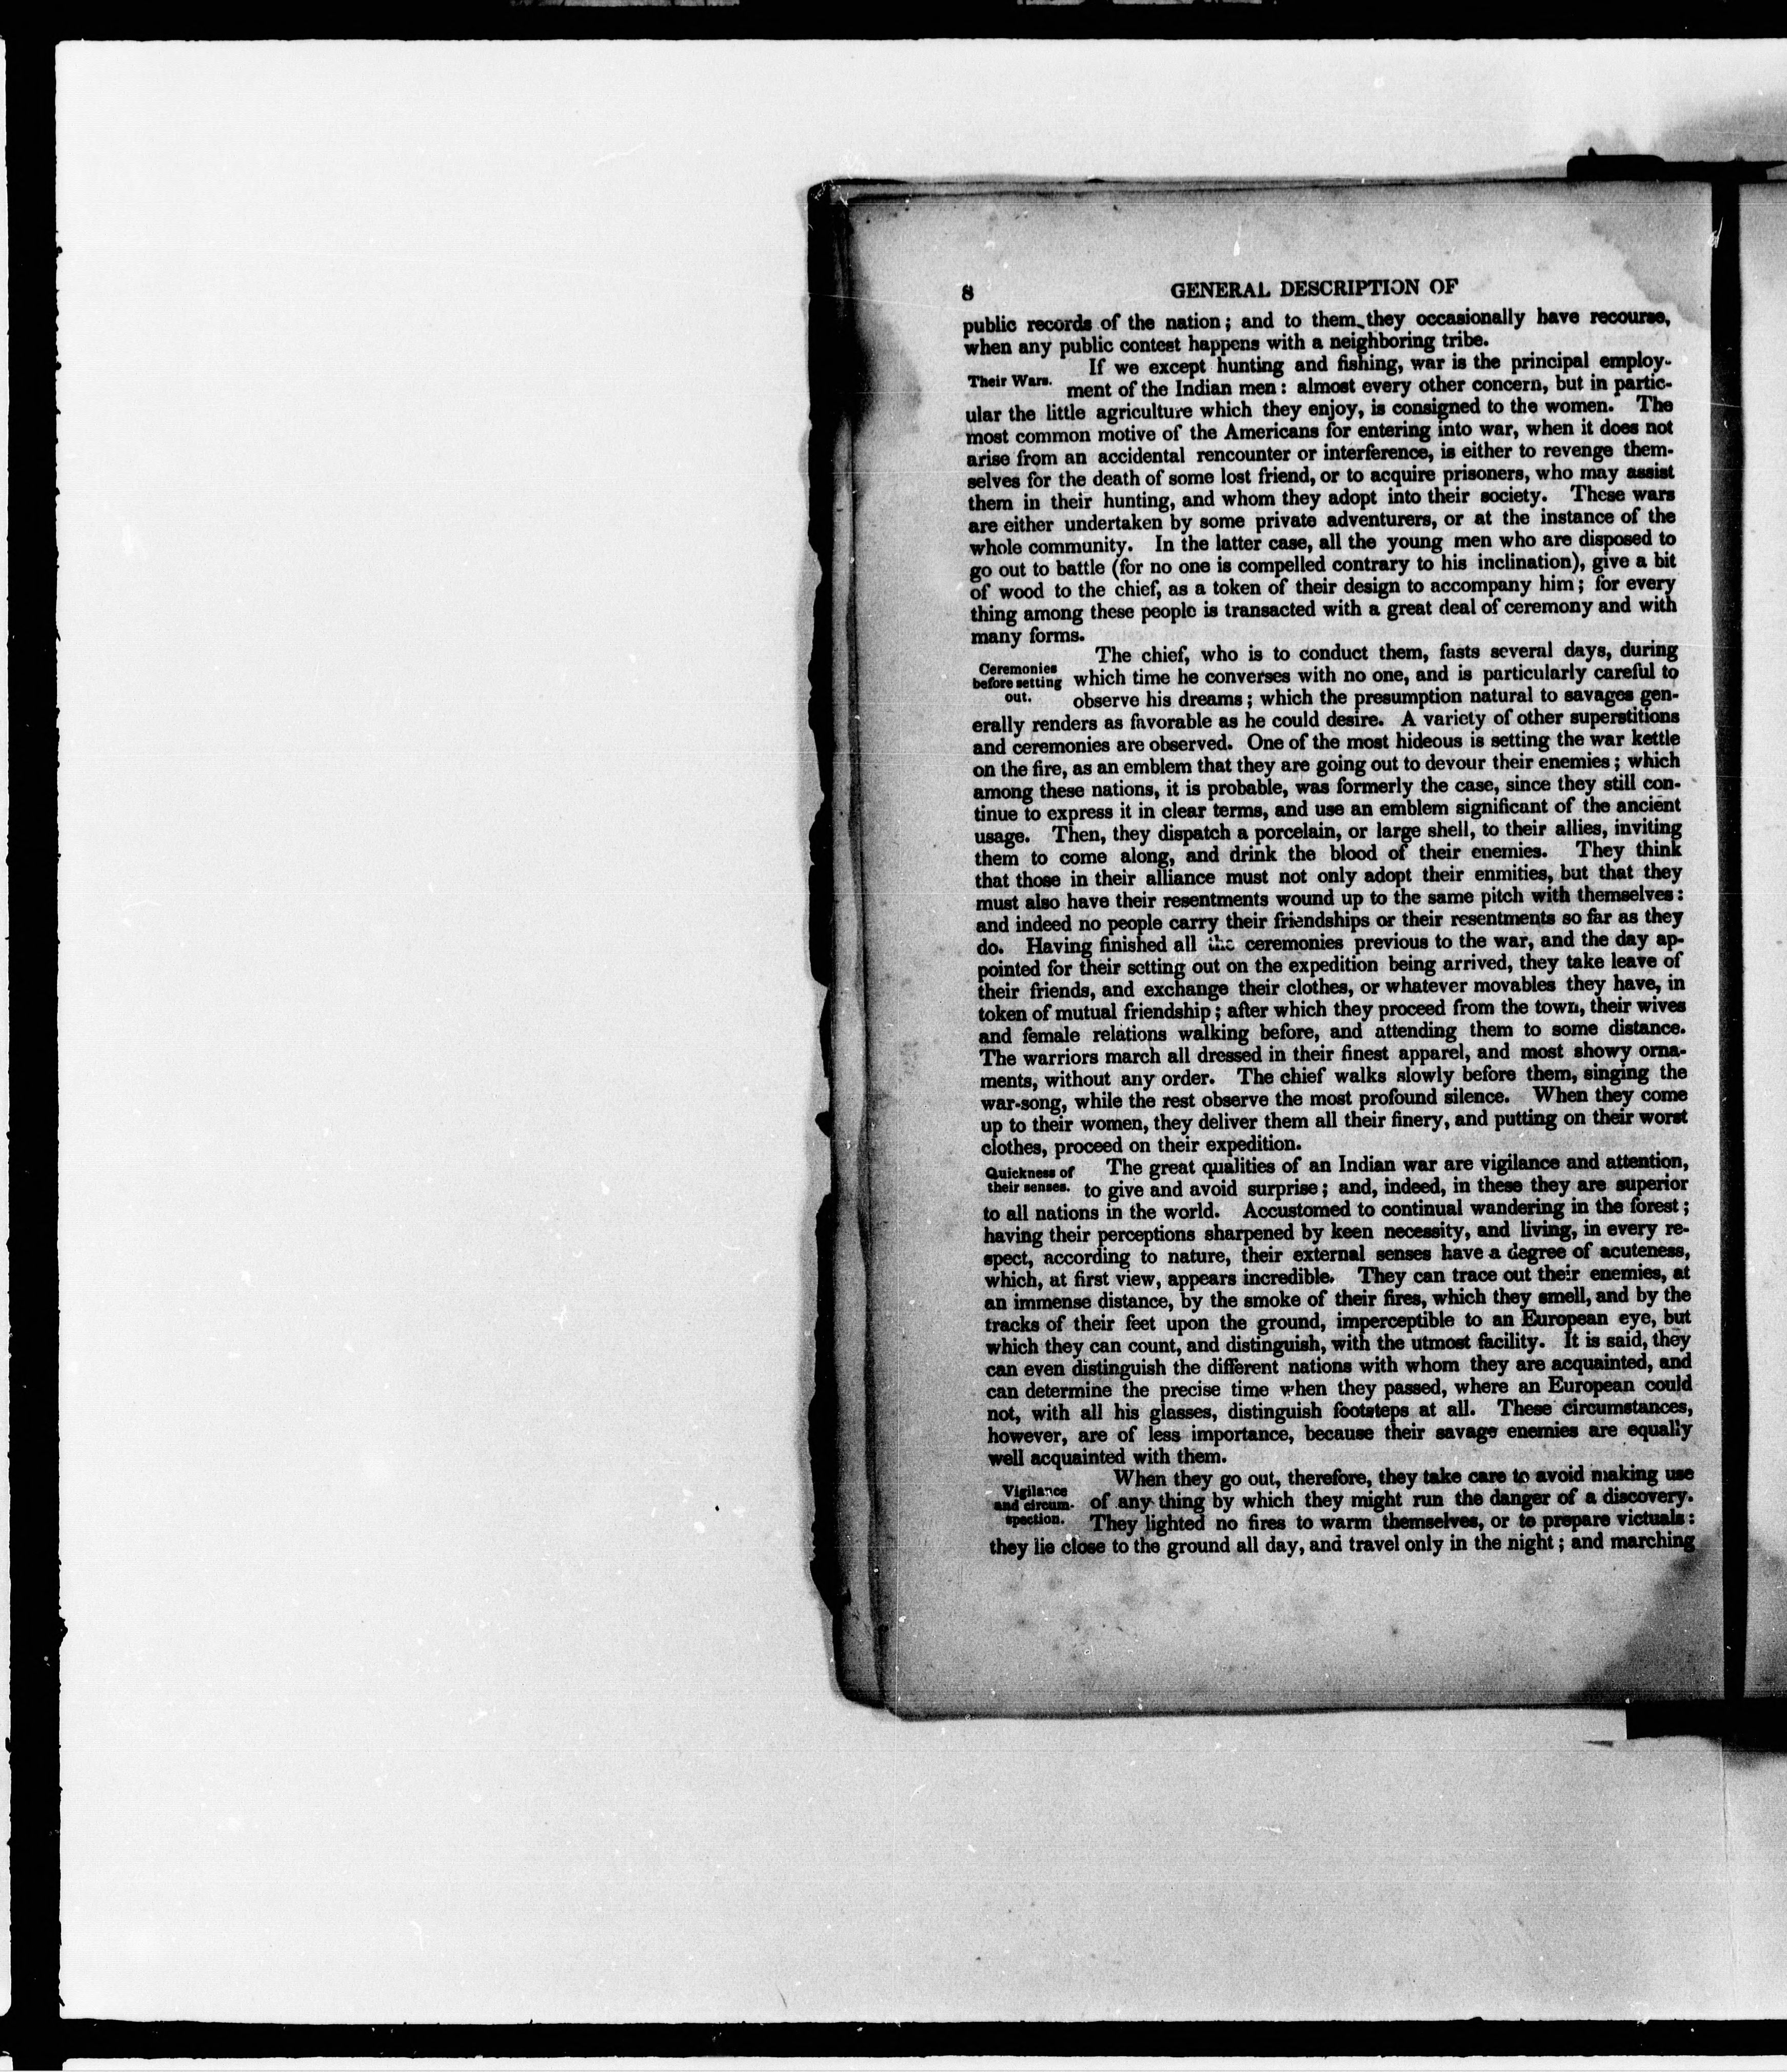 8 GENERAL DESCRIPTION OF
public records of the nation; and to them they occasionally have recourse,
when any public contest happens with a neighboring tribe.
If we except hunting and fishing, war is the principal employ-
Their Wars. ment of the Indian men: almost every other concern, but in partic-
ular the little agriculture which they enjoy, is consigned to the women. The
most common motive of the Americans for entering into war, when it does not
arise from an accidental rencounter or interference, is either to revenge them-
selves for the death of some lost friend, or to acquire prisoners, who may assist
them in their hunting, and whom they adopt into their society. These wars
are either undertaken by some private adventurers, or at the instance of the
whole community. In the latter case, all the young men who are disposed to
go out to battle (for no one is compelled contrary to his inclination), give a bit
of wood to the chief, as a token of their design to accompany him; for every
thing among these people is transacted with a great deal of ceremony and with
many forms.
The chief, who is to conduct them, fasts several days, during
Ceremonies
before setting which time he converses with no one, and is particularly careful to
out. observe his dreams; which the presumption natural to savages gen-
erally renders as favorable as he could desire. A variety of other superstitions
and ceremonies are observed. One of the most hideous is setting the war kettle
on the fire, as an emblem that they are going out to devour their enemies; which
among these nations, it is probable, was formerly the case, since they still con-
tinue to express it in clear terms, and use an emblem significant of the ancient
usage. Then, they dispatch a porcelain, or large shell, to their allies, inviting
them to come along, and drink the blood of their enemies. They think
that those in their alliance must not only adopt their enmities, but that they
must also have their resentments wound up to the same pitch with themselves:
and indeed no people carry their friendships or their resentments so far as they
do. Having finished all the ceremonies previous to the war, and the day ap-
pointed for their setting out on the expedition being arrived, they take leave of
their friends, and exchange their clothes, or whatever movables they have, in
token of mutual friendship; after which they proceed from the town, their wives
and female relations walking before, and attending them to some distance.
The warriors march all dressed in their finest apparel, and most showy orna-
ments, without any order. The chief walks slowly before them, singing the
war-song, while the rest observe the most profound silence. When they come
up to their women, they deliver them all their finery, and putting on their worst
clothes, proceed on their expedition.
Quickness of The great qualities of an Indian war are vigilance and attention,
their senses. to give and avoid surprise; and, indeed, in these they are superior
to all nations in the world. Accustomed to continual wandering in the forest;
having their perceptions sharpened by keen necessity, and living, in every re-
spect, according to nature, their external senses have a degree of acuteness,
which, at first view, appears incredible. They can trace out their enemies, at
an immense distance, by the smoke of their fires, which they smell, and by the
tracks of their feet upon the ground, imperceptible to an European eye, but
which they can count, and distinguish, with the utmost facility. It is said, they
can even distinguish the different nations with whom they are acquainted, and
can determine the precise time when they passed, where an European could
not, with all his glasses, distinguish footsteps at all. These circumstances,
however, are of less importance, because their savage enemies are equally
well acquainted with them.
When they go out, therefore, they take care to avoid making use
Vigilance
and circum- of any thing by which they might run the danger of a discovery.
spection. They lighted no fires to warm themselves, or to prepare victuals:
they lie close to the ground all day, and travel only in the night; and marching